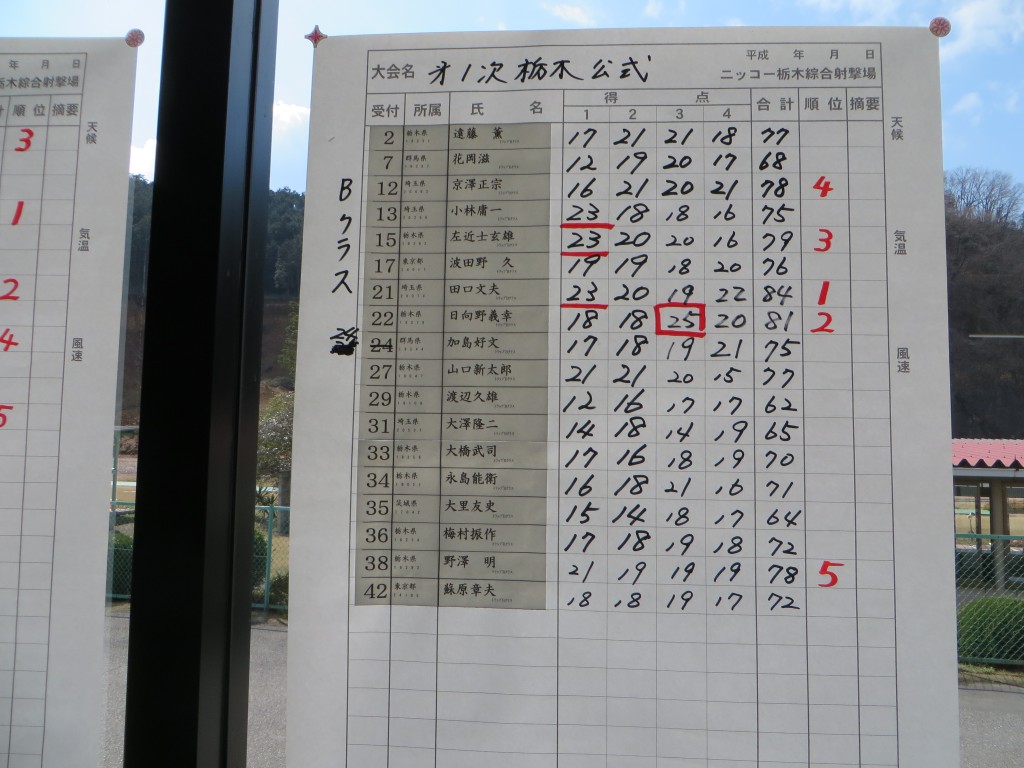 年 月 日
栃木綜合射撃場
順位 摘要
3
1
2
4
5
天候
気温
風速
平成 年 月 日
大会名 オ1次栃木公式 ニッコー栃木綜合射撃場
受付 所属 氏 名 得 点 合計 順位 摘要
1 2 3 4
Bクラス
2 栃木県 遠藤 薫 17 21 21 18 77
7 群馬県 花岡滋 12 19 20 17 68
12 埼玉県 京澤正宗 16 21 20 21 78 4
13 埼玉県 小林庸一 23 18 18 16 75
15 栃木県 左近士玄雄 23 20 20 16 79 3
17 東京都 波田野 久 19 19 18 20 76
21 埼玉県 田口文夫 23 20 19 22 84 1
22 栃木県 日向野義幸 18 18 25 20 81 2
24 群馬県 加島好文 17 18 19 21 75
27 栃木県 山口新太郎 21 21 20 15 77
29 栃木県 渡辺久雄 12 16 17 17 62
31 埼玉県 大澤隆二 14 18 14 19 65
33 栃木県 大橋武司 17 16 18 19 70
34 栃木県 永島能衛 16 18 21 16 71
35 茨城県 大里友史 15 14 18 17 64
36 栃木県 梅村振作 17 18 19 18 72
38 栃木県 野澤 明 21 19 19 19 78 5
42 東京都 蘇原章夫 18 18 19 17 72
天候
気温
風速